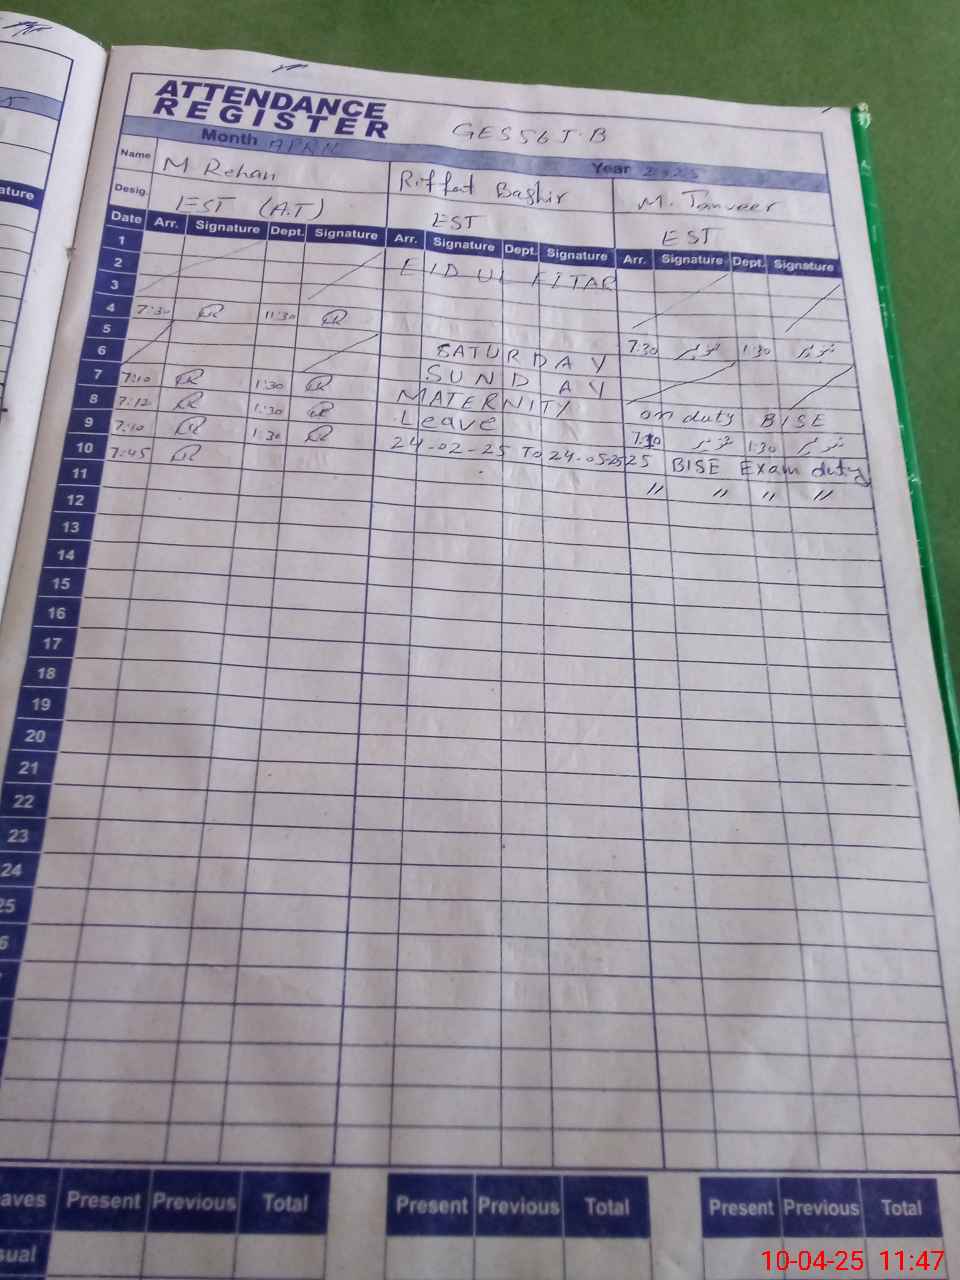 5
ature
ATTENDANCE
REGISTER
GES 56 J.B
Month APRIL Year 2025
Name M. Rehan Riffat Bashir M. Tanveer
Desig. EST (A.T) EST EST
Date Arr. Signature Dept. Signature Arr. Signature Dept. Signature Arr. Signature Dept. Signature
1
2 EID UL FITAR
3
4 7:30 11:30 7:30 تنویر 1:30 تنویر
5 SATURDAY
6 SUNDAY
7 7:10 1:30 MATERNITY on duty BISE
8 7:12 1:30 Leave 7:30 تنویر 1:30 تنویر
9 7:10 1:30 24-02-25 To 24-05-25 BISE Exam duty
10 7:45 〃 〃 〃 〃
11
12
13
14
15
16
17
18
19
20
21
22
23
24
25
6
aves Present Previous Total Present Previous Total Present Previous Total
sual
10-04-25 11:47